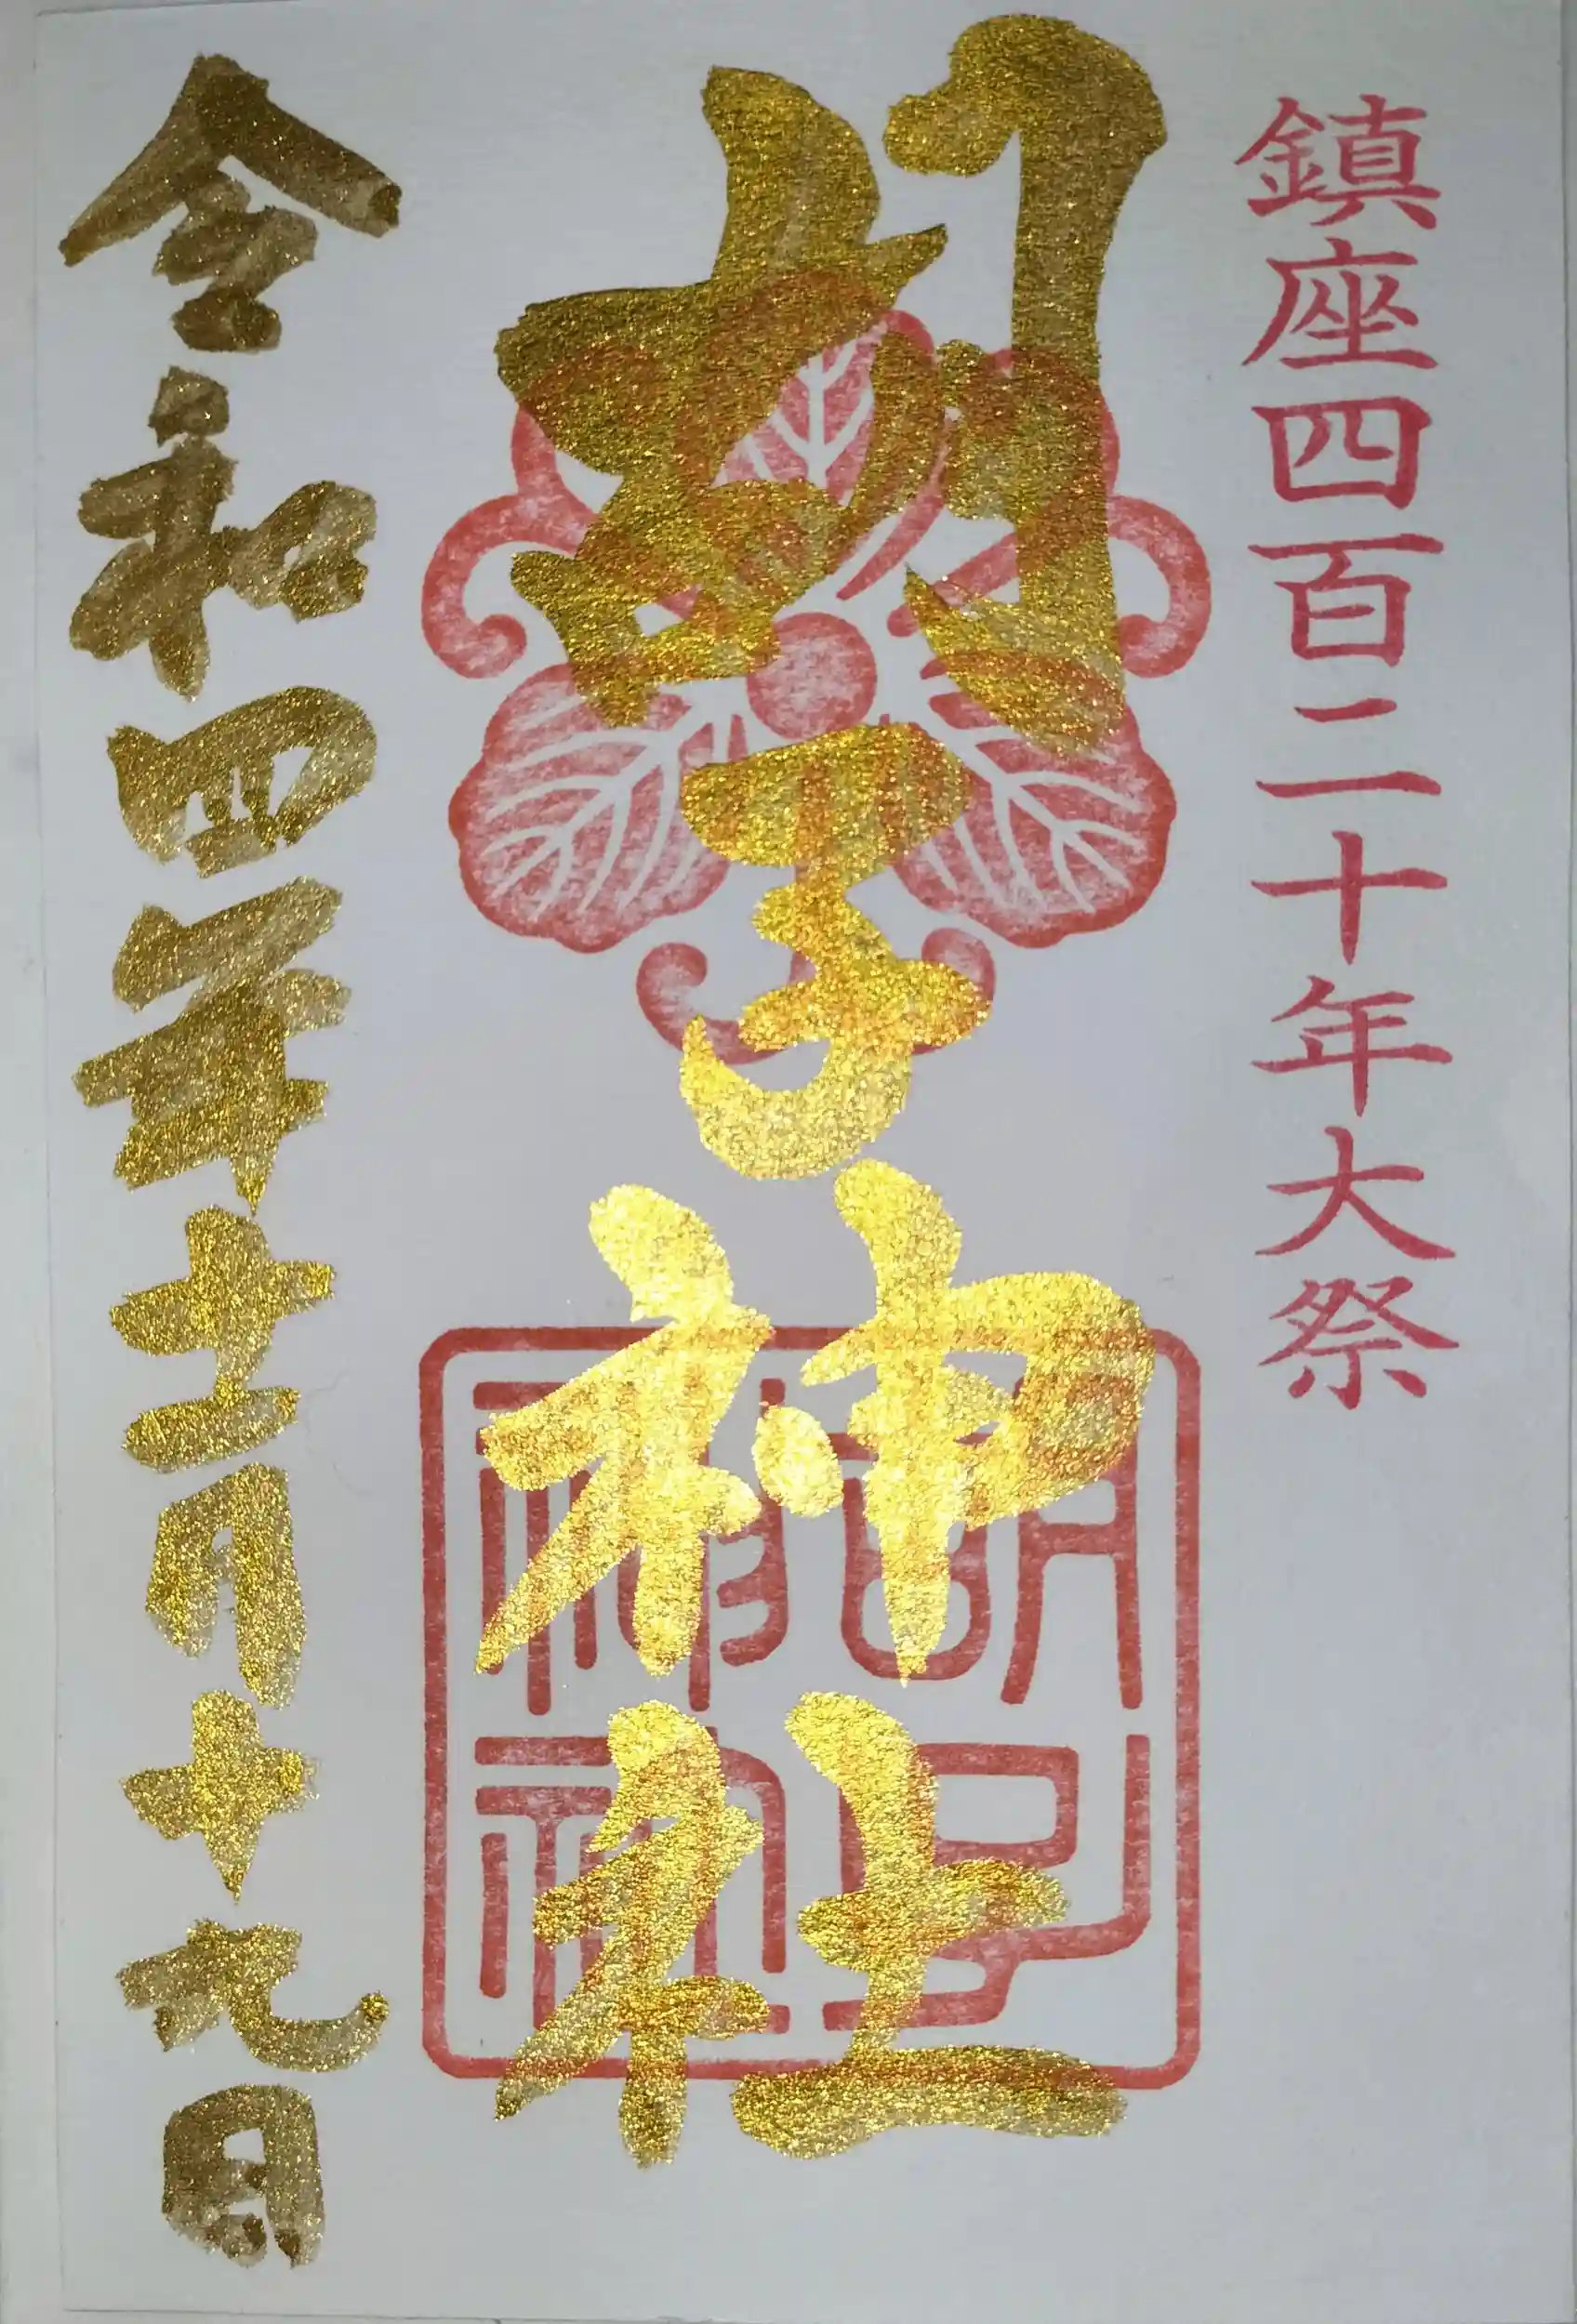 鎮座四百二十年大祭
胡子神社
令和四年十一月十九日
胡子
神社